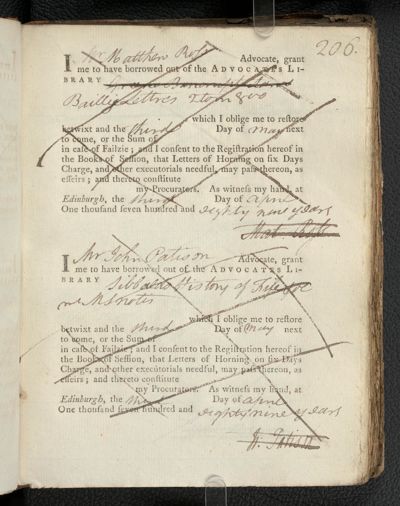 206.
I Mr Matthew Ross Advocate, grant
me to have borrowed out of the ADVOCATES LI-
BRARY
Lettres 2 tom 8vo
which I oblige me to restore
betwixt and the third Day of May next
to come, or the Sum of
in case of Failzie; and I consent to the Registration hereof in
the Books of Session, that Letters of Horning on six Days
Charge, and other executorials needful, may pass thereon, as
effeirs; and thereto constitute
my Procurators. As witness my hand, at
Edinburgh, the third Day of April
One thousand seven hundred and eighty nine years
Mat. Ross
I Mr John Patison Advocate, grant
me to have borrowed out of the ADVOCATES LI-
BRARY Sibbalds History of Fife &c
MS notes
which I oblige me to restore
betwixt and the third Day of May next
to come, or the Sum of
in case of Failzie; and I consent to the Registration hereof in
the Books of Session, that Letters of Horning on six Days
Charge, and other executorials needful, may pass thereon, as
effeirs; and thereto constitute
my Procurators. As witness my hand, at
Edinburgh, the third Day of April
One thousand seven hundred and eighty nine years
Patison